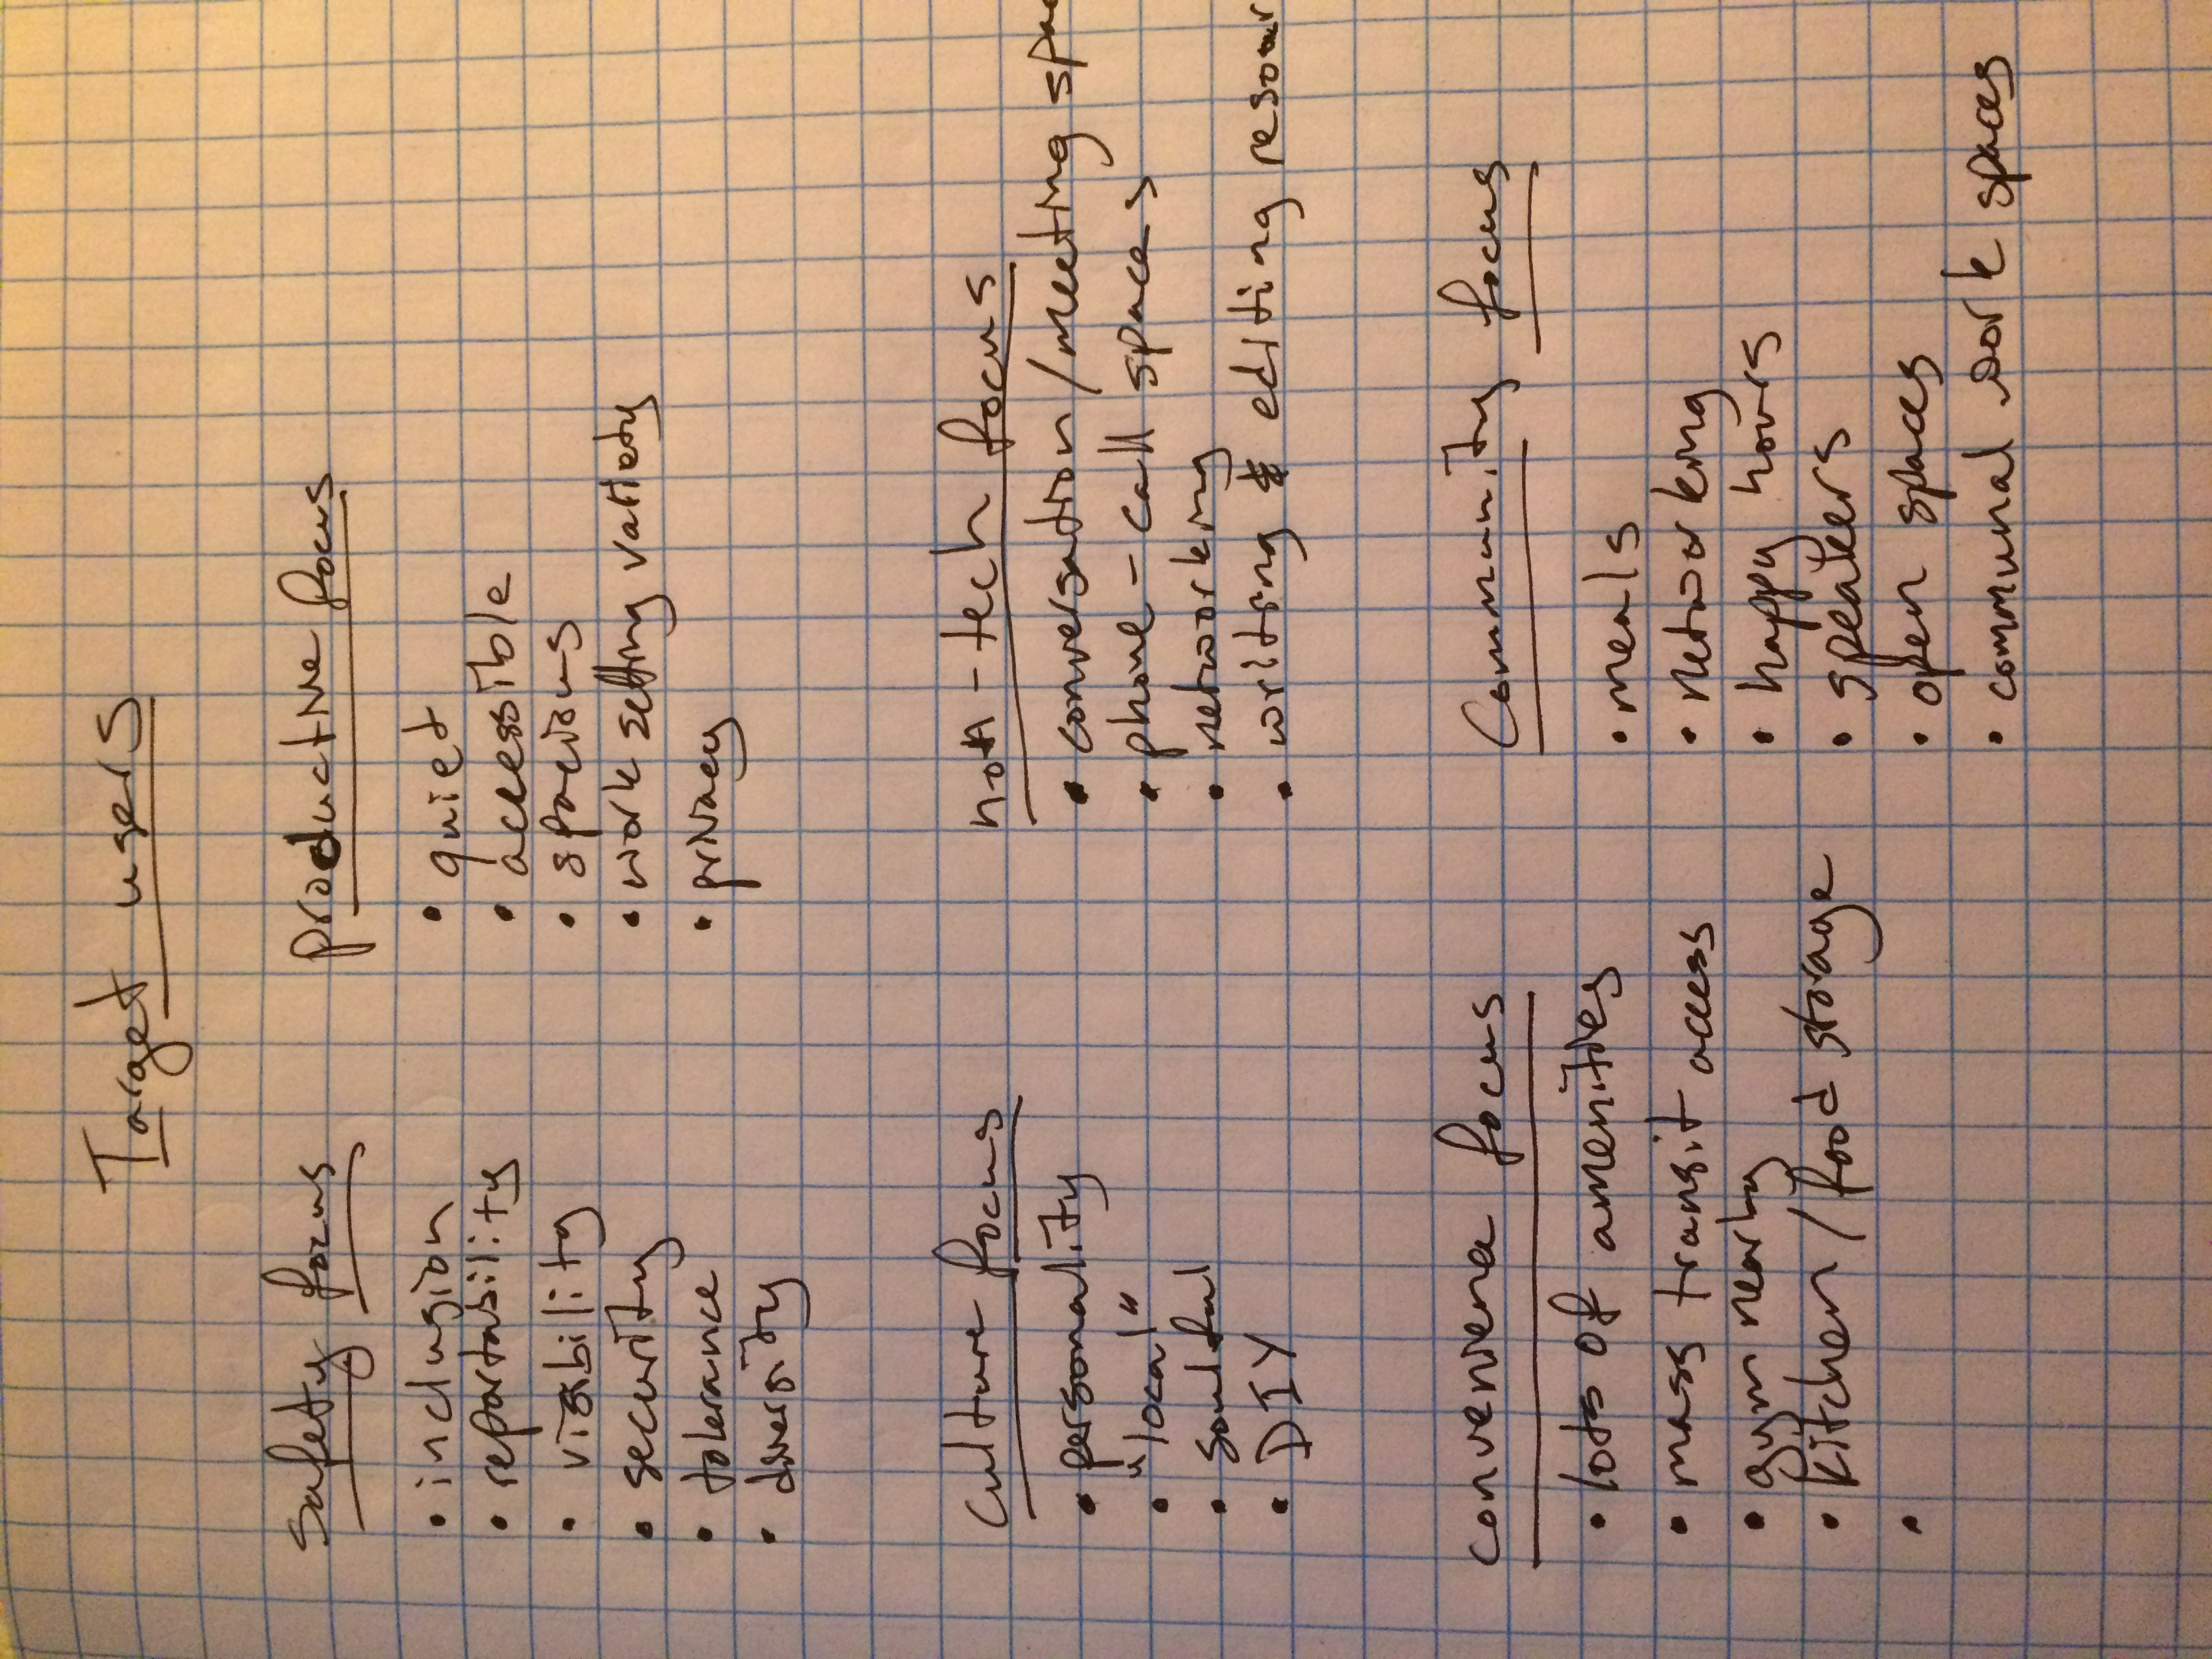 Target users
safety focus
• inclusion
• reportability
• visibility
• security
• tolerance
• diversity
productive focus
• quiet
• accessible
• spacious
• work setting variety
• privacy
culture focus
• personality
• "local"
• soulful
• DIY
non-tech focus
• conversation/meeting spac
• phone-call spaces
• networking
• writing & editing resour
convenience focus
• lots of amenities
• mass transit access
• gym nearby
• kitchen/food storage
•
Community focus
• meals
• networking
• happy hours
• speakers
• open spaces
• communal work spaces